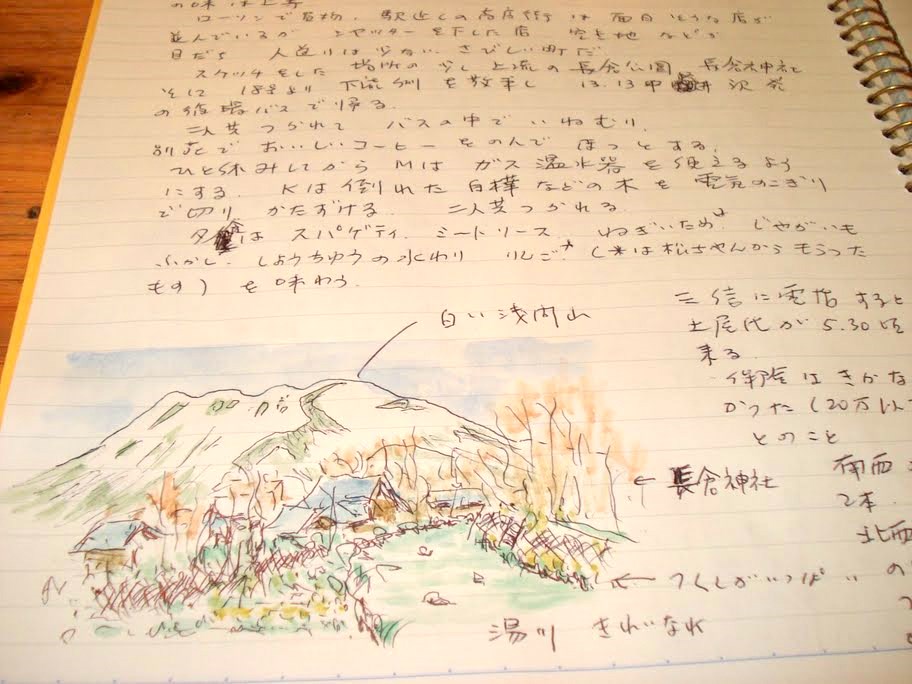 の味は上等
ローソンで買物、駅近くの商店街は面白そうな店が
並んでいるが シャッターを下した店 空き地などが
目だち 人通りは少ない さびしい町だ
スケッチをした 場所の少し上流の長倉公園 長倉神社
そに より 下流 を散策し 13.13 中 次発
の循環バスで帰る。
二人共つかれて バスの中で いねむり、
別荘で おいしいコーヒーをのんで ほっとする。
ひと休みしてから Mは ガス温水器を使えるよう
にする Kは倒れた白樺などの木を電気のこぎり
で切り かたずける 二人共つかれる
夕食は スパゲティ、ミートソース ねぎいため、じゃがいも
ふかし、しょうちゅうの水わり りんご* (*は松さんからもらった
もの) を味わう。
白い浅間山
三信に電話すると
土屋代が 5.30 頃
来る
保険はきかな
かった (20万以
とのこと
← 長倉神社
南面
2本
北面
の
← つくしがいっぱい
湯川 きれいな水